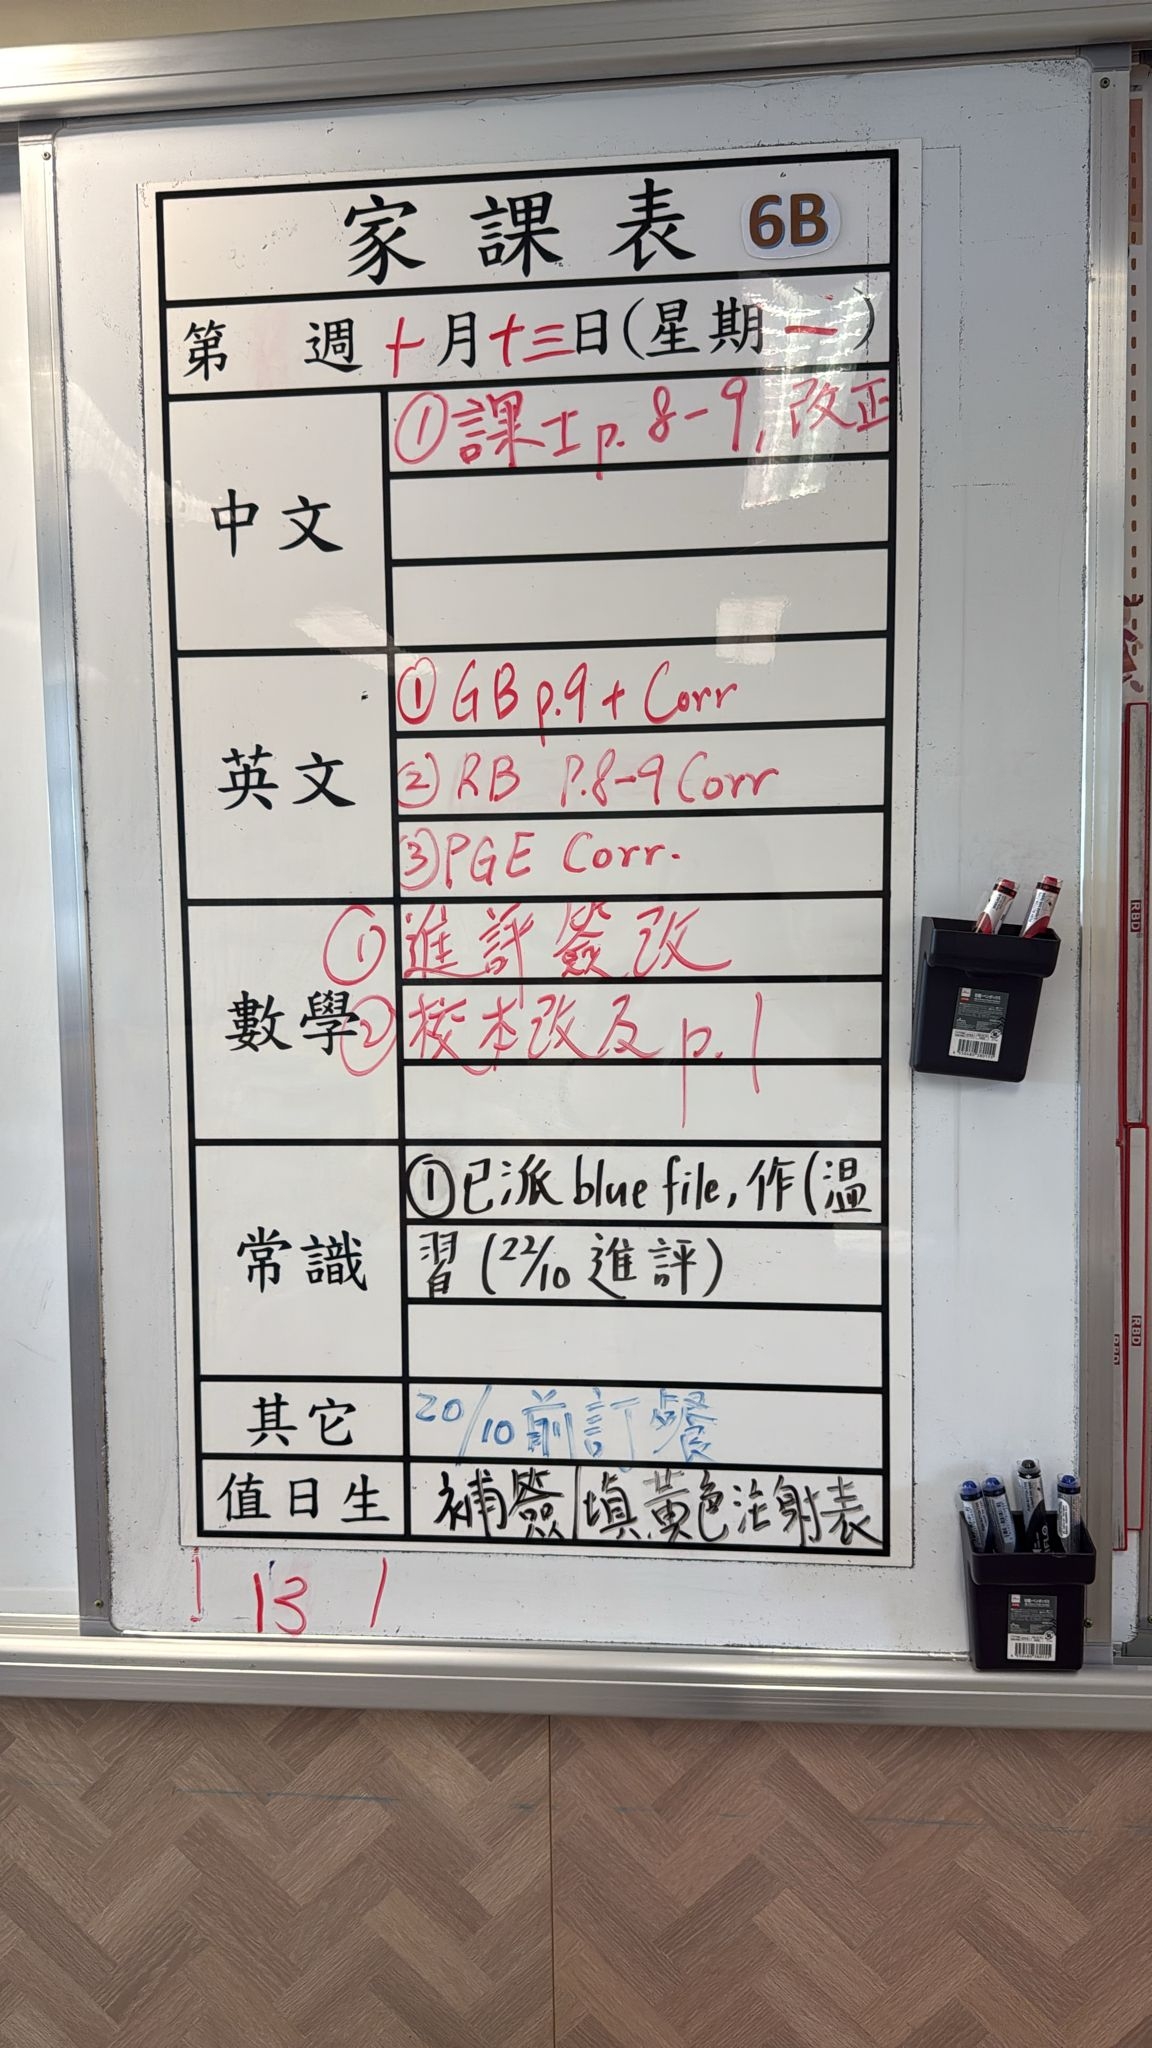 家課表 6B
第 週 十月十三日(星期一)
中文
①課士p. 8-9, 改正
英文
① GB p.9 + Corr
② RB P.8-9 Corr
③ PGE Corr.
數學
① 進評簽改
② 校本改及 p. 1
常識
①已派 blue file, 作(溫
習 (22/10 進評)
其它
20/10前訂餐
值日生
補簽/填黃色注射表
1 13 1
RBD
RBD
RBD